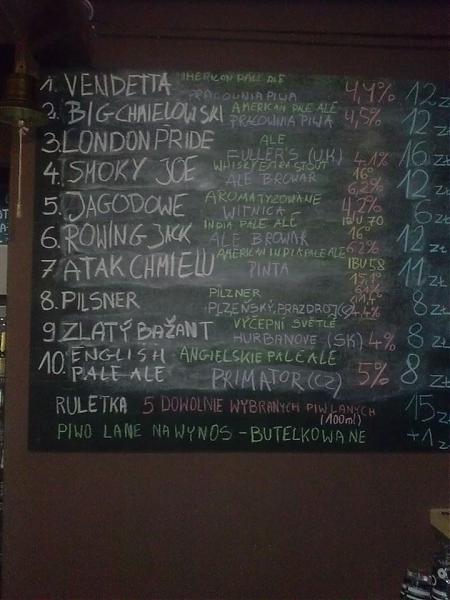 1. VENDETTA AMERICAN PALE ALE
PRACOWNIA PIWA 4,4% 12 ZŁ
2. BIG CHMIELOWSKI AMERICAN PALE ALE
PRACOWNIA PIWA 4,5% 12 ZŁ
3. LONDON PRIDE ALE
FULLER'S (UK) 4,1% 16 ZŁ
4. SMOKY JOE WHISKY EXTRA STOUT
ALE BROWAR 16° 6,2% 12 ZŁ
5. JAGODOWE AROMATYZOWANE
WITNICA 4,2% 6 ZŁ
6. ROWING JACK INDIA PALE ALE IBU 70
ALE BROWAR 16° 6,2% 12 ZŁ
7 ATAK CHMIELU AMERICAN INDIA PALE ALE
PINTA IBU 58 15,1° 6,1% 11 ZŁ
8. PILSNER PILZNER
PLZEŇSKÝ PRAZDROJ 4,4% 8 ZŁ
9 ZLATÝ BAŽANT VÝČEPNÍ SVĚTLÉ
HURBANOVE (SK) 4% 8 ZŁ
10. ENGLISH PALE ALE ANGIELSKIE PALE ALE
PRIMATOR (CZ) 5% 8 ZŁ
RULETKA 5 DOWOLNIE WYBRANYCH PIW LANYCH 15 ZŁ
(100ml)
PIWO LANE NA WYNOS - BUTELKOWANE +1 Z